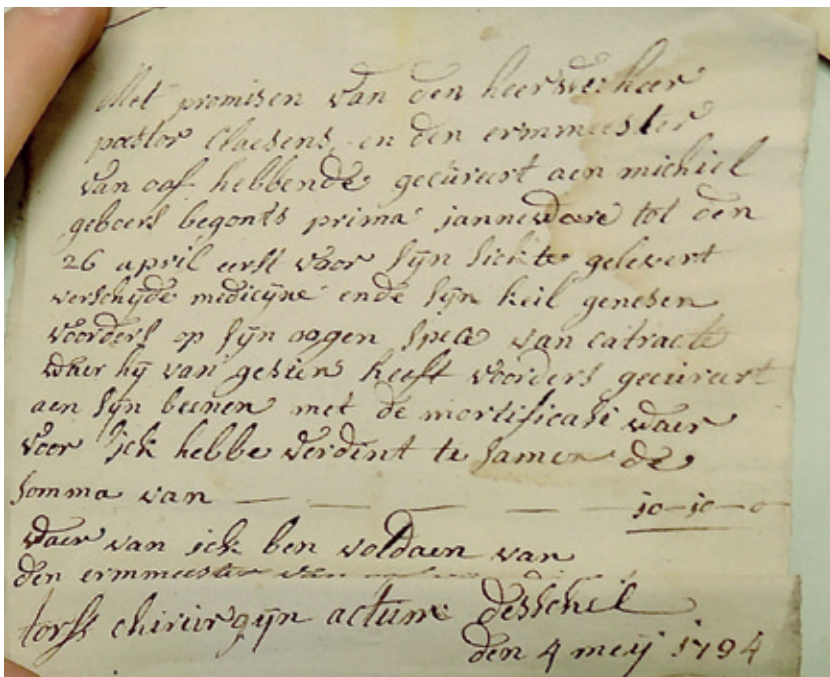 Met promisen van den heer ver heer
pastor Claesens en den ermmeester
van oaf hebbende gecureert aen michiel
geboers begonts prima jannewaere tot den
26 april eerst voor sijn sickte gelevert
verschijde medicijne ende sijn keil genesen
voorders op sijn oogen spece van catracte
waer hij van gesien heeft voorders gecureert
aen sijn beenen met de mortificasi waer
voor ick hebbe verdint te samen de
somma van — — — — — 10-10-0
waer van ick ben voldaen van
den ermmeester van
torfs chirurgijn actum desschel
den 4 meij 1794